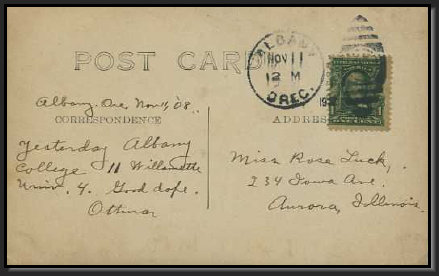 POST CARD
ALBANY
NOV 11
12 M
OREG.
Albany. Ore. Nov. 11, '08.
CORRESPONDENCE
ADDRESS
Yesterday Albany
College 11 Willamette
Univ. 4. Good dope.
Ottmar
Miss Rose Luck,
234 Iowa Ave.
Aurora, Illinois.